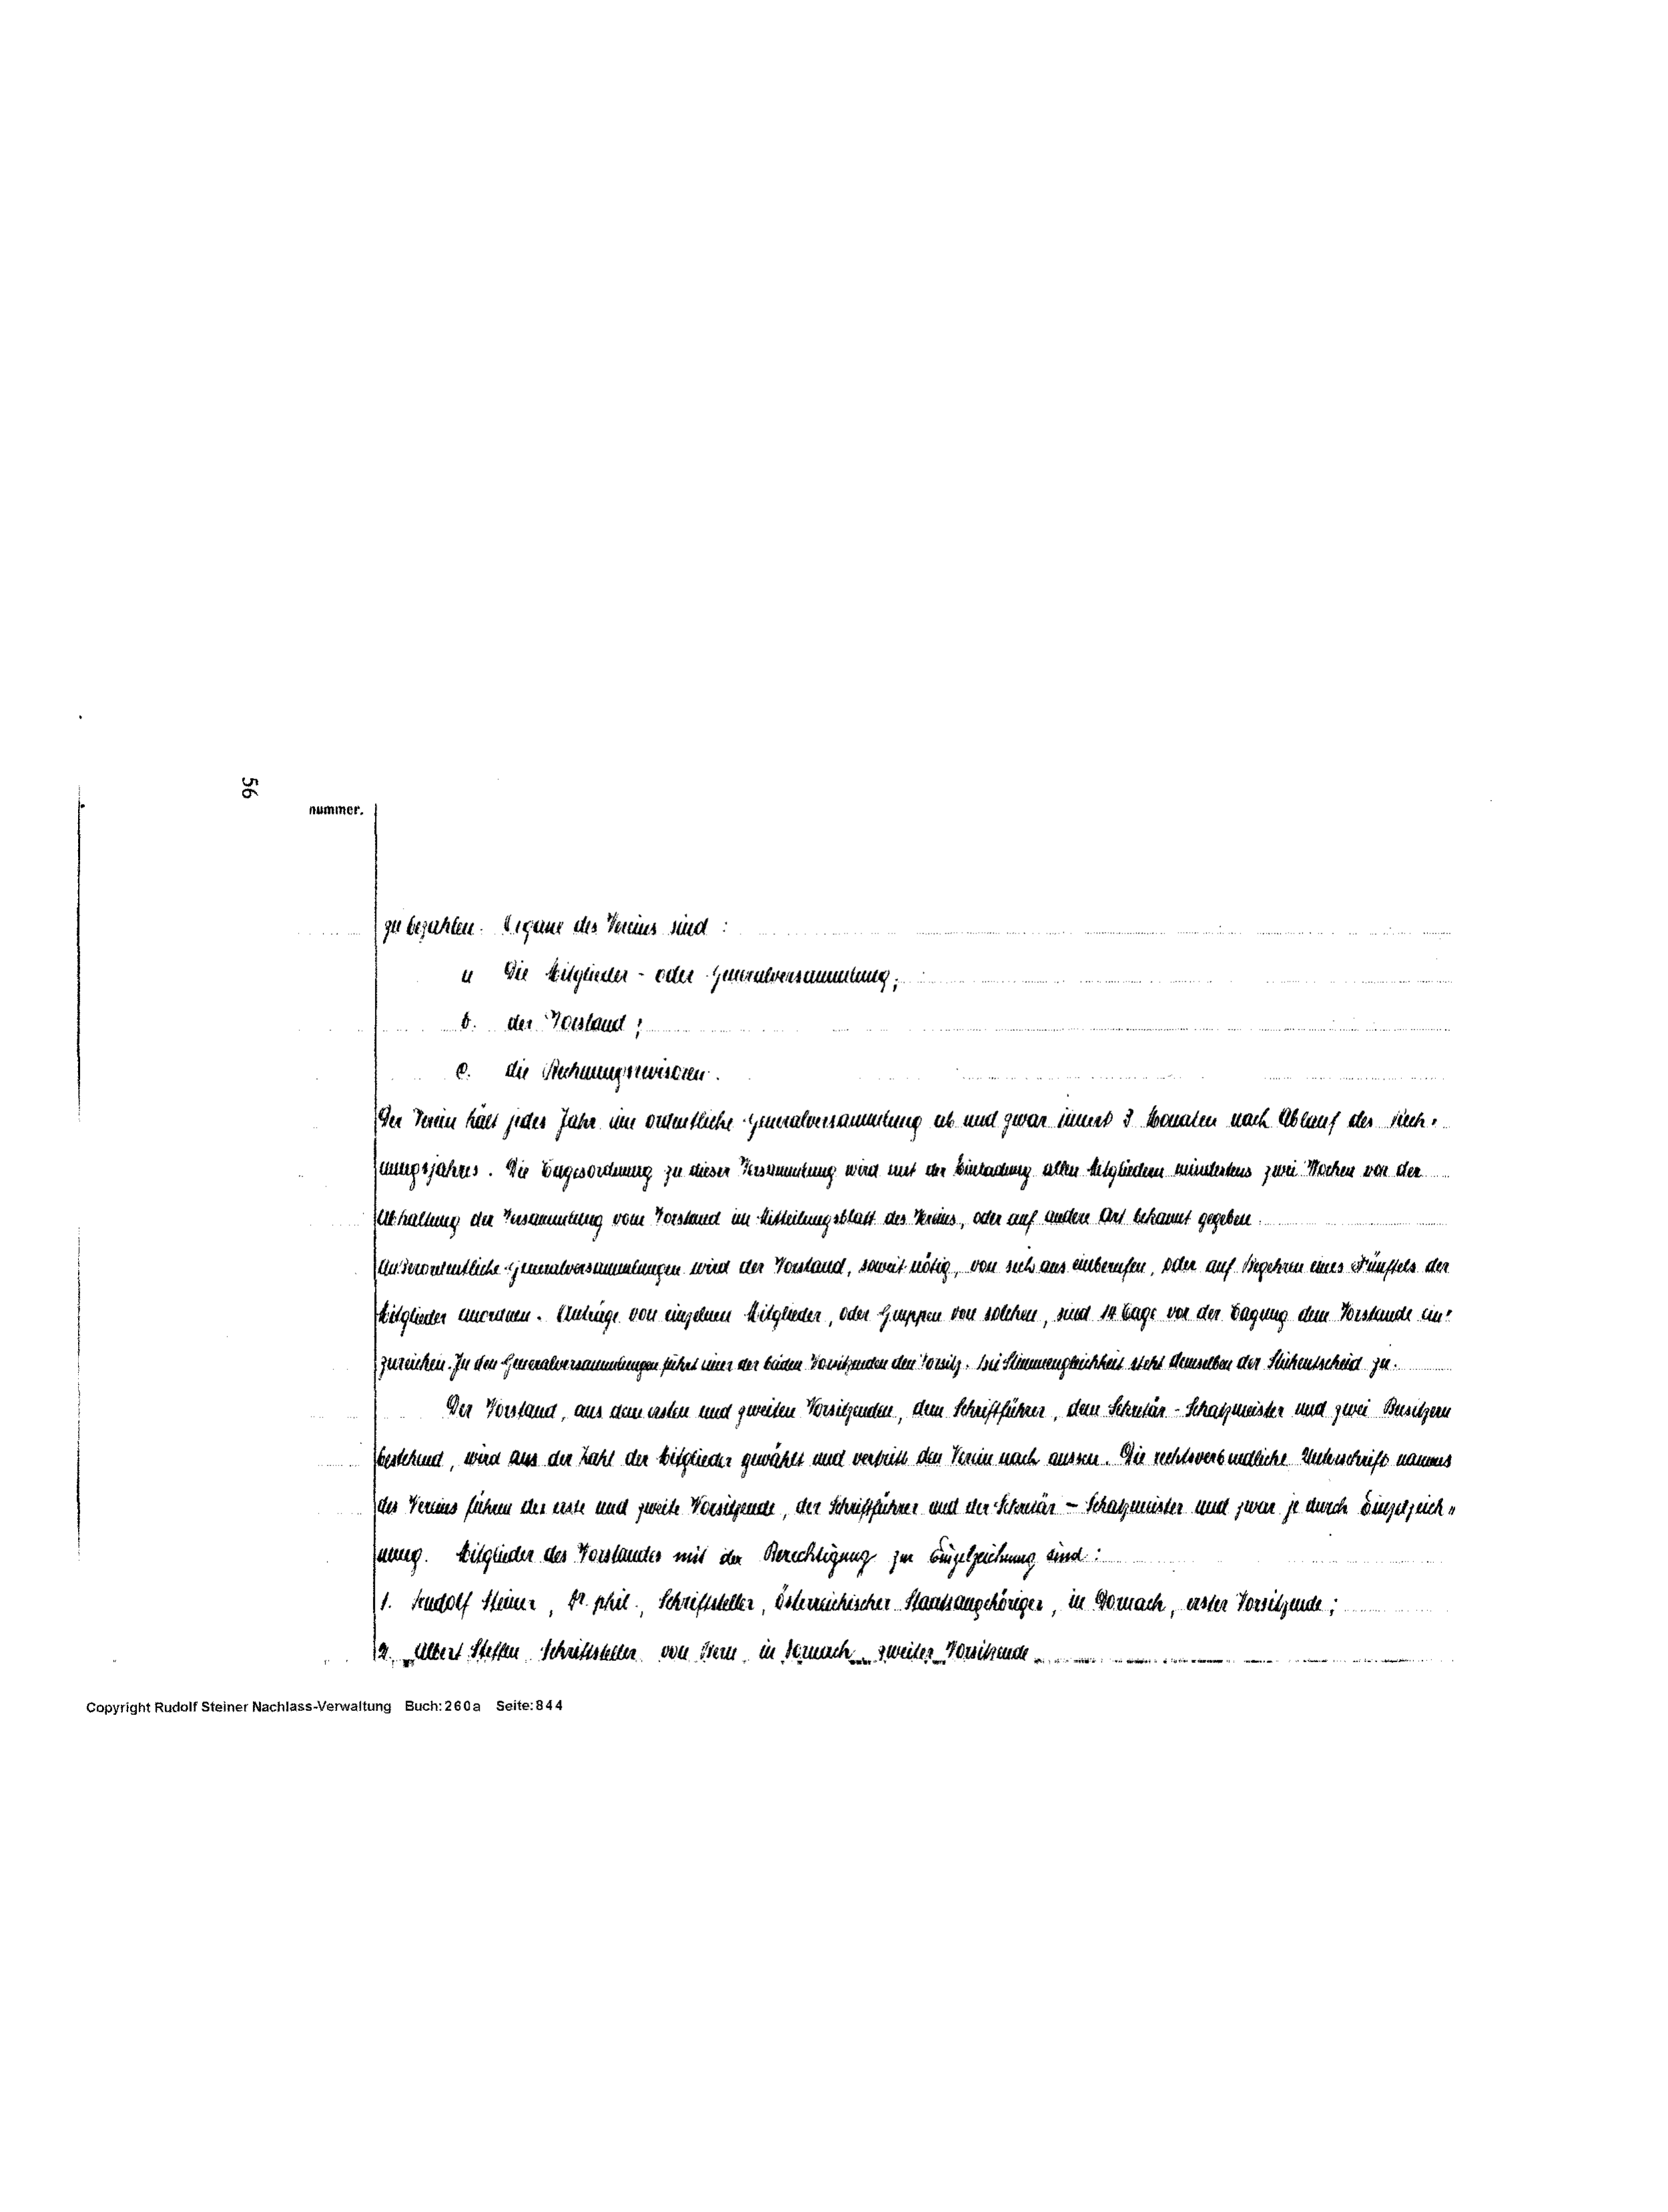 56
nummer.
zu bezahlen. Organe des Vereins sind :
a Die Mitglieder - oder Generalversammlung;
b. der Vorstand ;
c. die Rechnungsrevisoren.
Der Verein hält jedes Jahr eine ordentliche Generalversammlung ab und zwar innert 3 Monaten nach Ablauf des Rech-
nungsjahres. Die Tagesordnung zu dieser Versammlung wird mit der Einladung allen Mitgliedern mindestens zwei Wochen vor der
Abhaltung der Versammlung vom Vorstand im Mitteilungsblatt des Vereins, oder auf andere Art bekannt gegeben.
Außerordentliche Generalversammlungen wird der Vorstand, soweit nötig, von sich aus einberufen, oder auf Begehren eines Fünftels der
Mitglieder anordnen. Anträge von einzelnen Mitglieder, oder Gruppen von solchen, sind 14 Tage vor der Tagung dem Vorstande ein-
zureichen. In den Generalversammlungen führt einer der beiden Vorsitzenden den Vorsitz. Bei Stimmengleichheit steht demselben der Stichentscheid zu.
Der Vorstand, aus dem ersten und zweiten Vorsitzenden, dem Schriftführer, dem Sekretär - Schatzmeister und zwei Beisitzern
bestehend, wird aus der Zahl der Mitglieder gewählt und vertritt den Verein nach aussen. Die rechtsverbindliche Unterschrift namens
des Vereins führen der erste und zweite Vorsitzende, der Schriftführer und der Sekretär - Schatzmeister und zwar je durch Einzelzeich-
nung. Mitglieder des Vorstandes mit der Berechtigung zur Einzelzeichnung sind :
1. Rudolf Steiner, Dr. phil., Schriftsteller, österreichischer Staatsangehöriger, in Dornach, erster Vorsitzende;
2. Albert Steffen Schriftsteller von Bern in Dornach zweiter Vorsitzende
Copyright Rudolf Steiner Nachlass-Verwaltung Buch:260a Seite:844